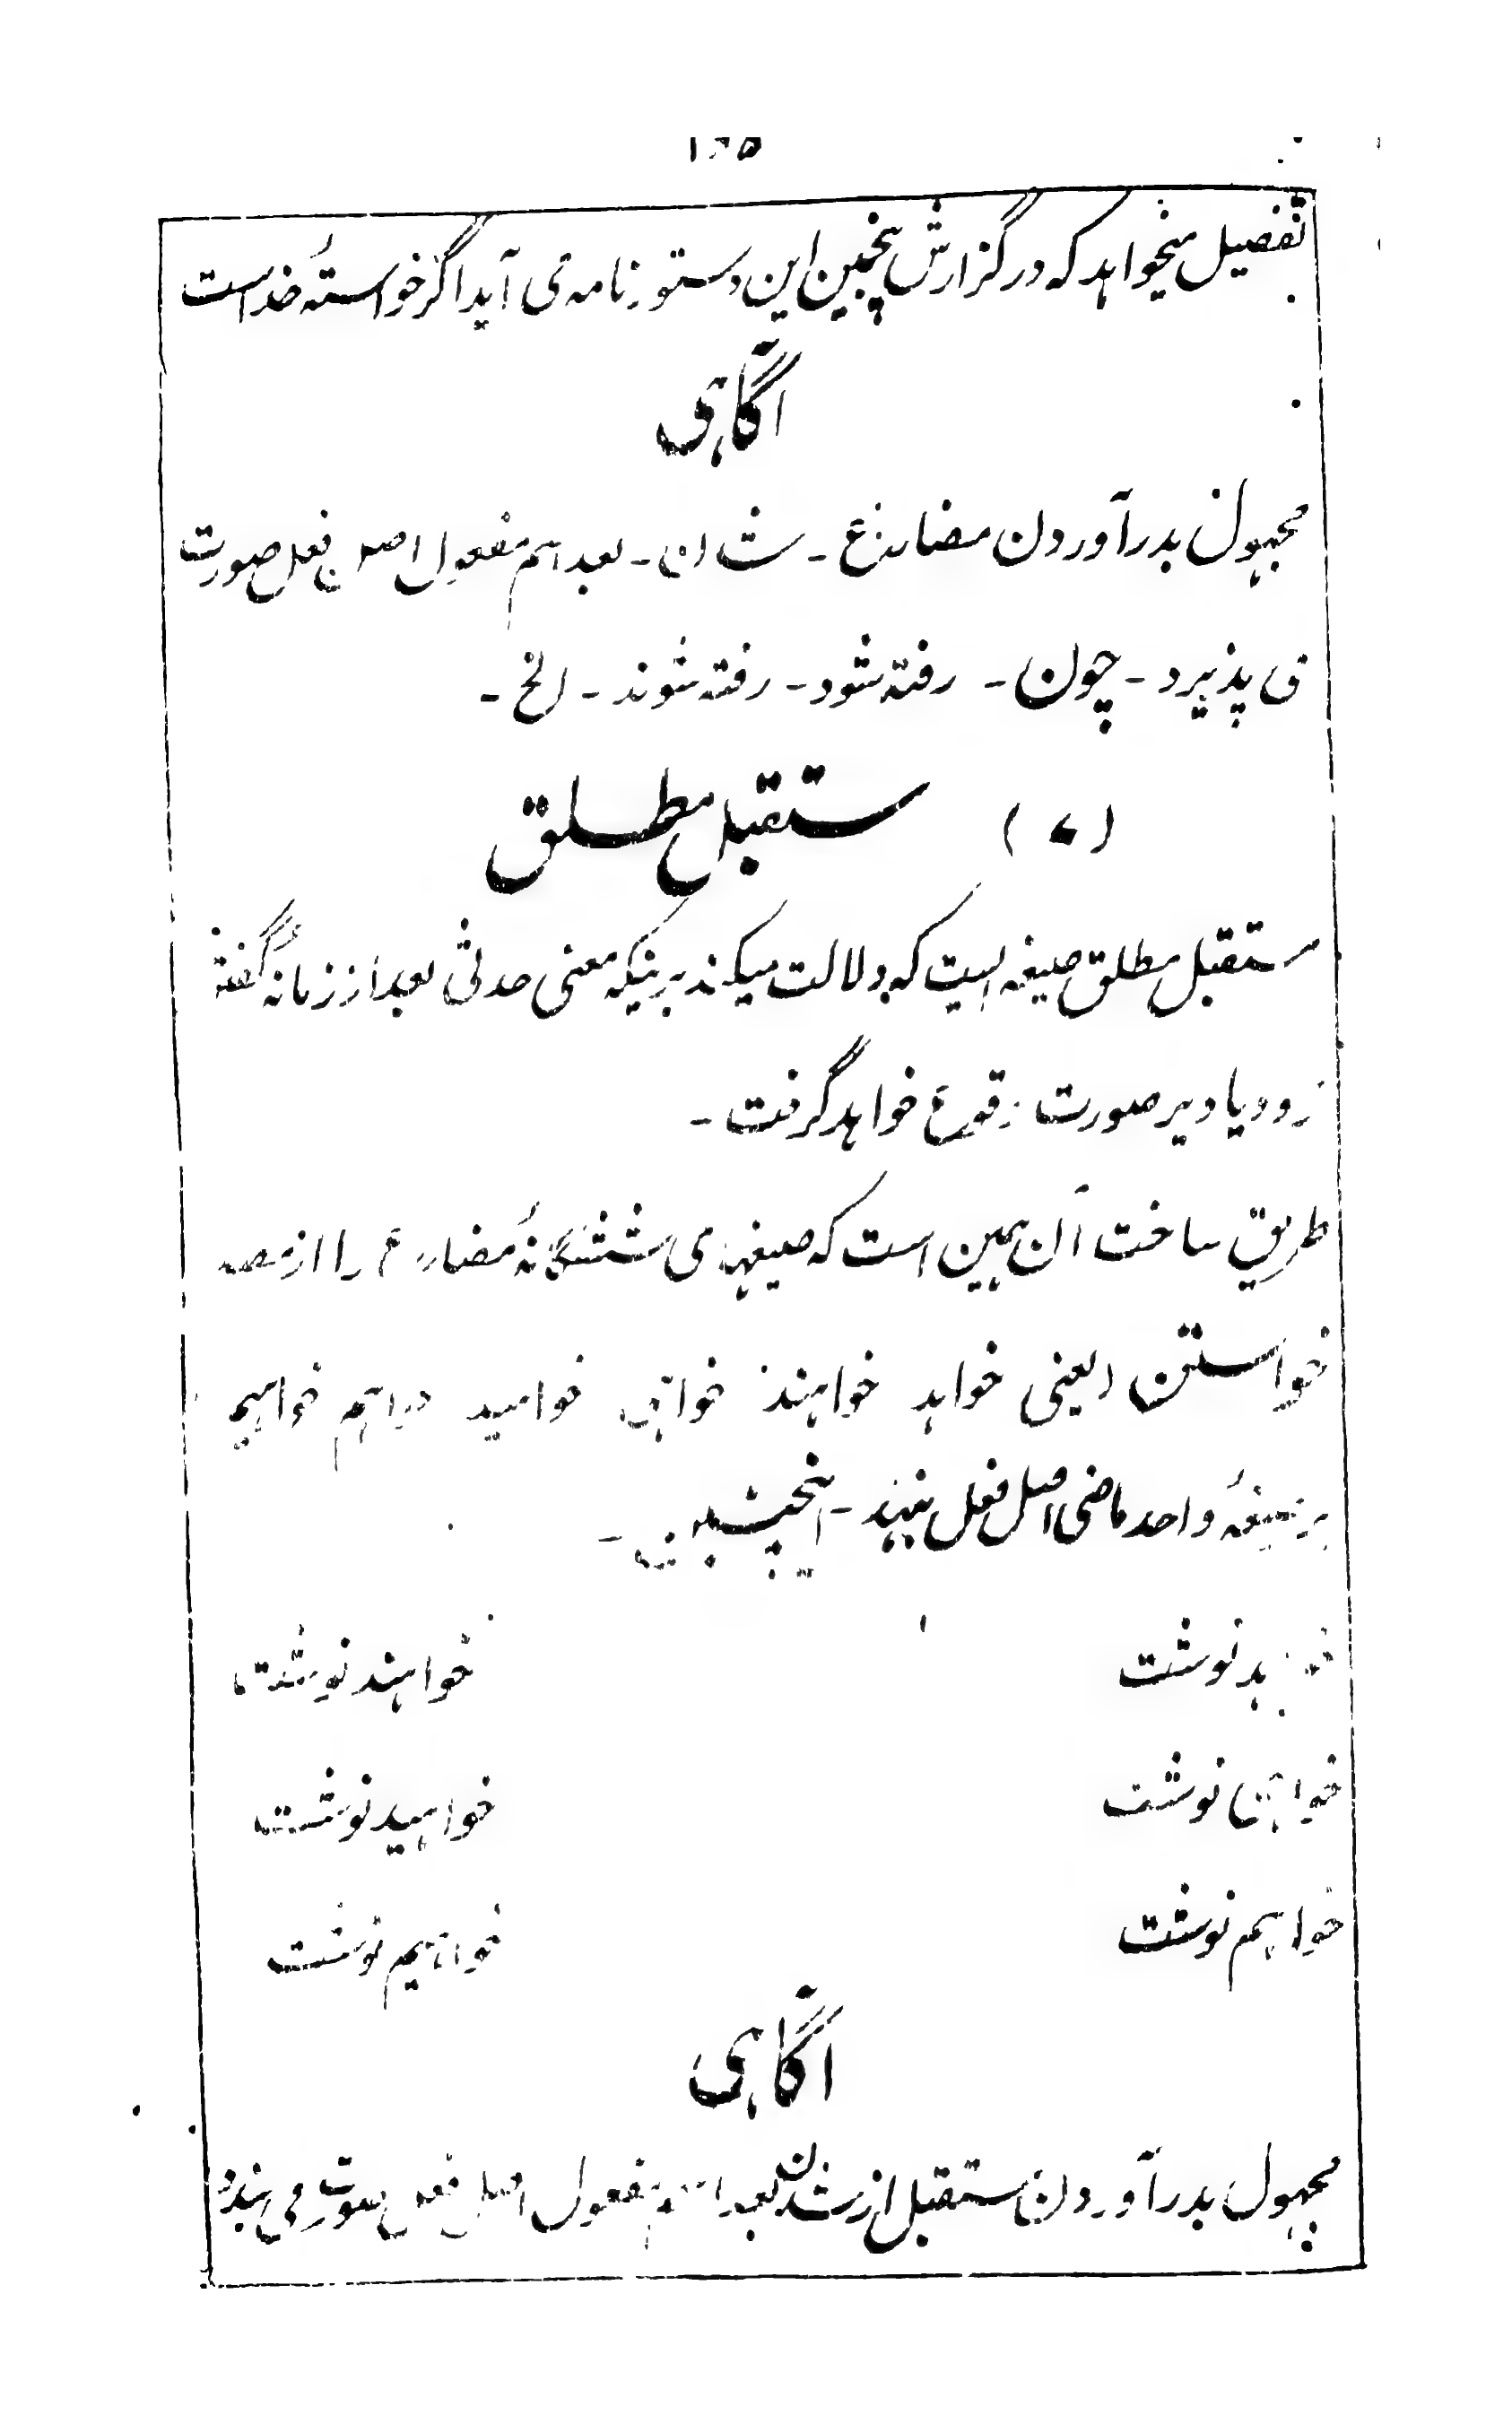 ۱۲۵
تفصیل میخواهد که در گزارش پنجمین این دستور نامه می آید اگر خواستهٔ خداست
آگاہی
مجہول بدر آوردن مضارع ۔ شدن ۔ بعد اسم مفعول اصل فعل صورت
می پذیرد ۔ چون ۔ رفته شود ۔ رفته شوند ۔ الخ ۔
(۷) مستقبل مطلق
مستقبل مطلق صیغه ایست که دلالت میکند برینکه معنی حدثی بعد از زمانهٔ گفته
زود یا دیر صورت وقوع خواهد گرفت ۔
طریق ساخت آن همین است که صیغهای ششگانهٔ مضارع را از مصدر
خواستن (یعنی خواهد خواهند خواهی خواهید خواهم خواهیم
بر صیغهٔ واحد ماضی اصل فعل بنهند ۔
خواهد نوشت خواهند نوشت
خواهی نوشت خواهید نوشت
خواهم نوشت خواهیم نوشت
آگاہی
مجہول بدر آوردن مستقبل از شدن بعد اسم مفعول اصل فعل صورت می بندد